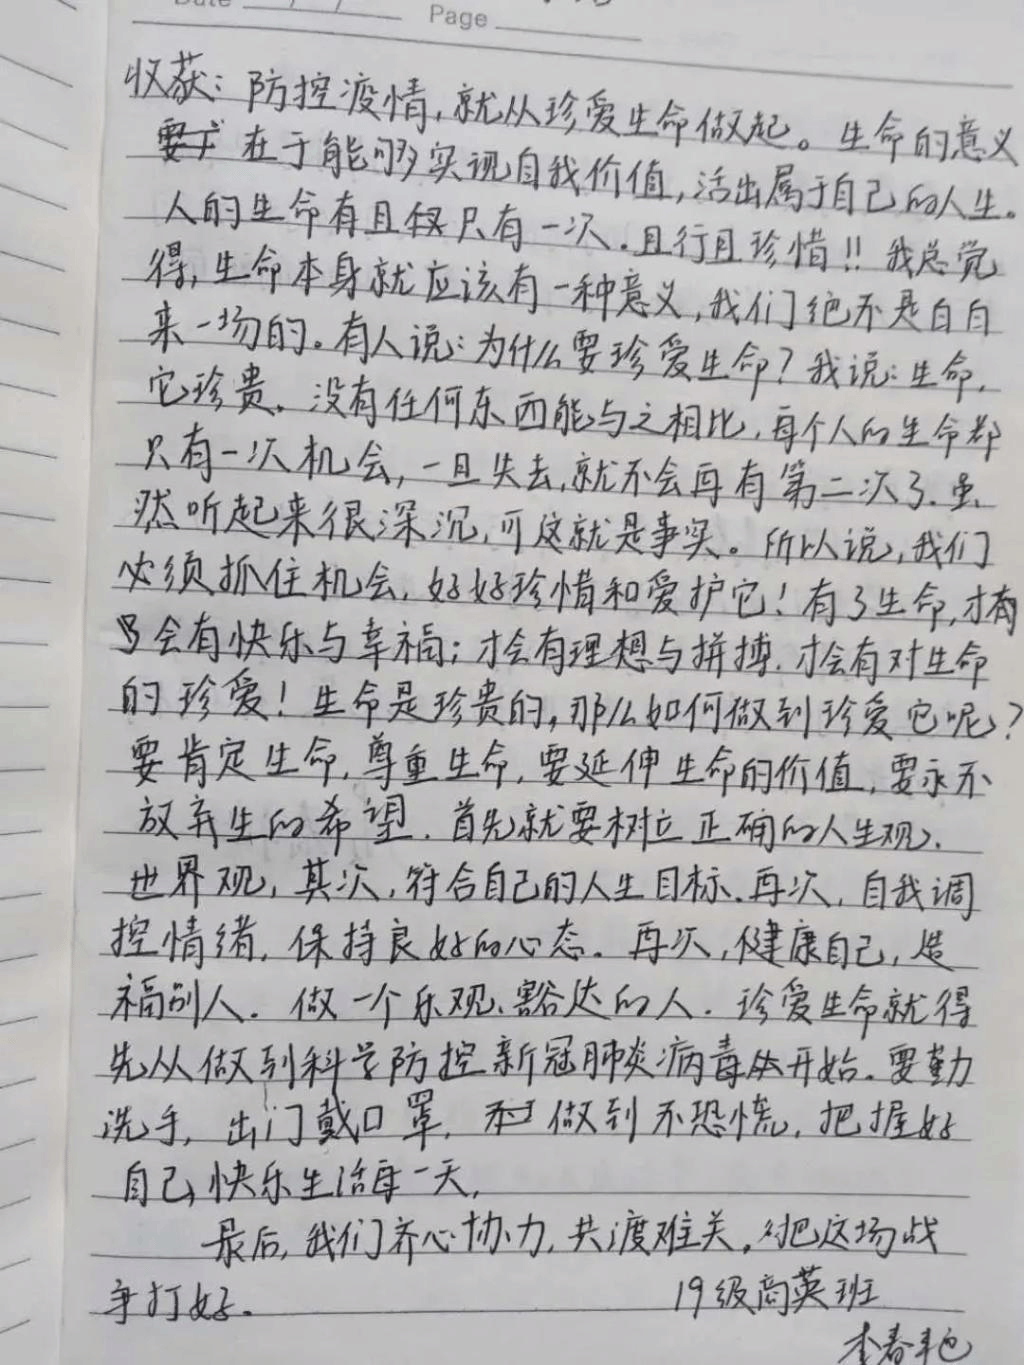 Date / /
Page
收获：防控疫情，就从珍爱生命做起。生命的意义
在于能够实现自我价值，活出属于自己的人生。
人的生命有且只有一次．且行且珍惜!! 我总觉
得，生命本身就应该有一种意义，我们绝不是白白
来一场的。有人说：为什么要珍爱生命？我说：生命，
它珍贵、没有任何东西能与之相比，每个人的生命都
只有一次机会，一旦失去，就不会再有第二次了．虽
然听起来很深沉，可这就是事实。所以说，我们
必须抓住机会，好好珍惜和爱护它！有了生命，才有
会有快乐与幸福；才会有理想与拼搏．才会有对生命
的珍爱！生命是珍贵的，那么如何做到珍爱它呢？
要肯定生命，尊重生命，要延伸生命的价值，要永不
放弃生的希望．首先就要树立正确的人生观、
世界观，其次，符合自己的人生目标．再次，自我调
控情绪，保持良好的心态．再次，健康自己，造
福别人．做一个乐观、豁达的人．珍爱生命就得
先从做到科学防控新冠肺炎病毒开始．要勤
洗手，出门戴口罩，做到不恐慌，把握好
自己，快乐生活每一天，
最后，我们齐心协力，共渡难关，把这场战
争打好．
19级高英班
李春艳